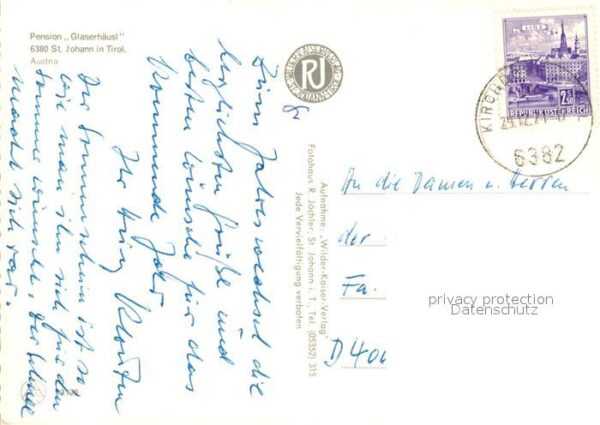 Pension „Glaserhäusl"
6380 St. Johann in Tirol,
Austria
Zum Jahreswechsel die
herzlichsten Grüße und
besten Wünsche für das
kommende Jahr
Ihr
Der Sonnenschein ist so
wie man ihn sich für den
Sommer wünscht. Der Schnee
macht sich rar.
WILDER-KAISER-VERLAG
RJ
ST. JOHANN i. T.
Aufnahme: „Wilder-Kaiser-Verlag"
Fotohaus R. Jöchler, St. Johann i. T., Tel. (05352) 315
Jede Vervielfältigung verboten
LINZ
2.50
REPUBLIK ÖSTERREICH
KIRCHD
29.12.71
6382
An die Damen u. Herren
der
Fa.
D 400
privacy protection
Datenschutz